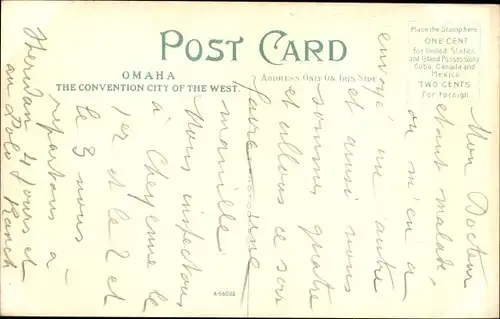 POST CARD
OMAHA
THE CONVENTION CITY OF THE WEST.
ADDRESS ONLY ON THIS SIDE
Place the Stamp here
ONE CENT
for United States
and Island Possessions
Cuba, Canada and
Mexico
TWO CENTS
For foreign
Mon Docteur
étant malade,
on m'en a
envoyé un autre
et ainsi nous
sommes quatre
et allons ce soir
faire une
manille
Nous inspectons
à Cheyenne le
1er et le 2 et
le 3 nous
repartons à
Sheridan 4 jours et
au Lolo Ranch
A-56025